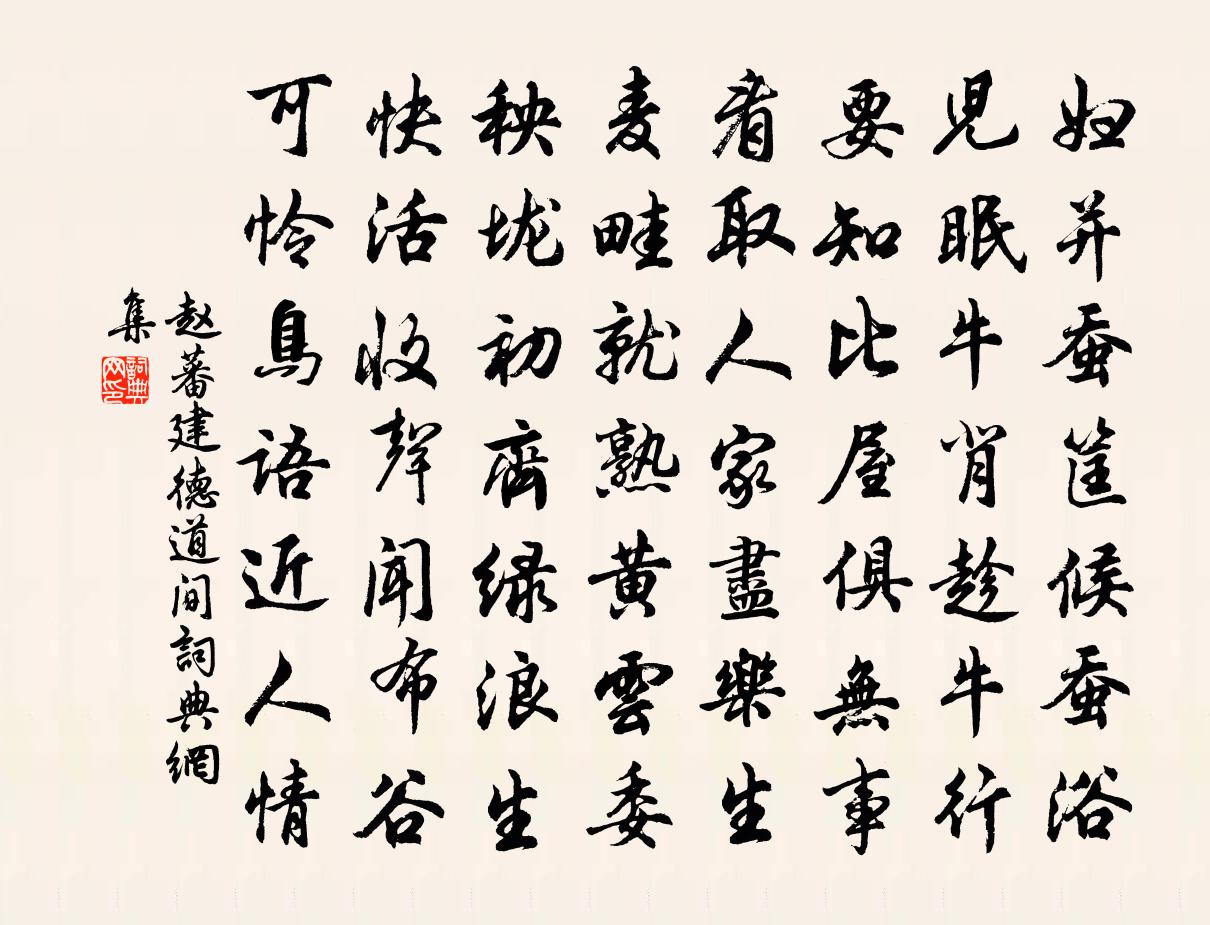 妇并蚕筐候蚕浴
児眠牛背趁牛行
要知比屋俱無事
看取人家盡樂生
麦畦就熟黄雲委
秧垅初齊绿浪生
快活收聲闻布谷
可怜鳥語近人情
赵蕃建德道间詞典網
集
詞典网印